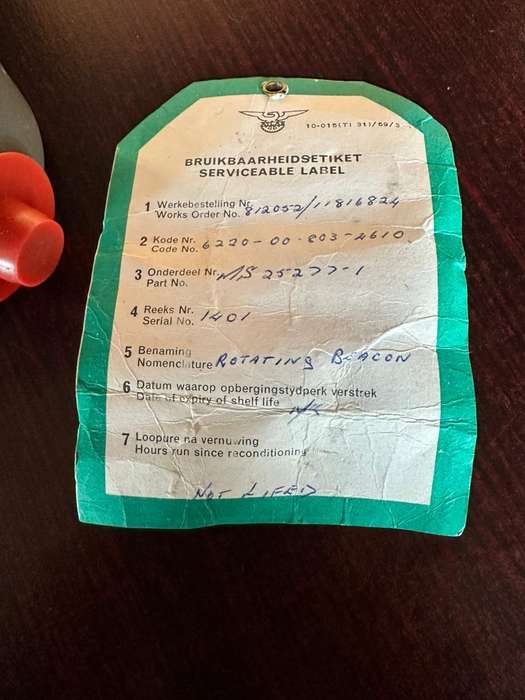 10-016(T) 31)/69/3
BRUIKBAARHEIDSETIKET
SERVICEABLE LABEL
1 Werkebestelling Nr.
Works Order No. 812052/11816824
2 Kode Nr.
Code No. 6220-00-803-2610
3 Onderdeel Nr.
Part No. MS 25277-1
4 Reeks Nr.
Serial No. 1401
5 Benaming
Nomenclature ROTATING BEACON
6 Datum waarop opbergingstydperk verstrek
Date of expiry of shelf life
7 Loopure na vernuwing
Hours run since reconditioning
NOT LIFED